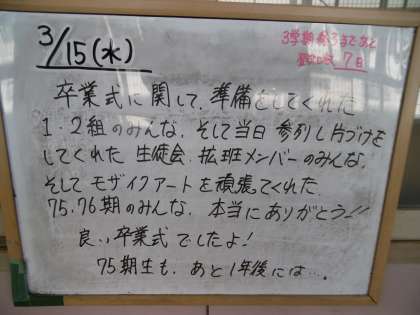 3/15(水)
3学期終了まであと
登校日 7日
卒業式に関して、準備をしてくれた
1・2組のみんな、そして当日 参列し片づけを
してくれた 生徒会、拡班メンバーのみんな、
そして モザイクアートを頑張ってくれた
75、76期のみんな、本当にありがとう!!
良い卒業式でしたよ!
75期生も、あと1年後には…。